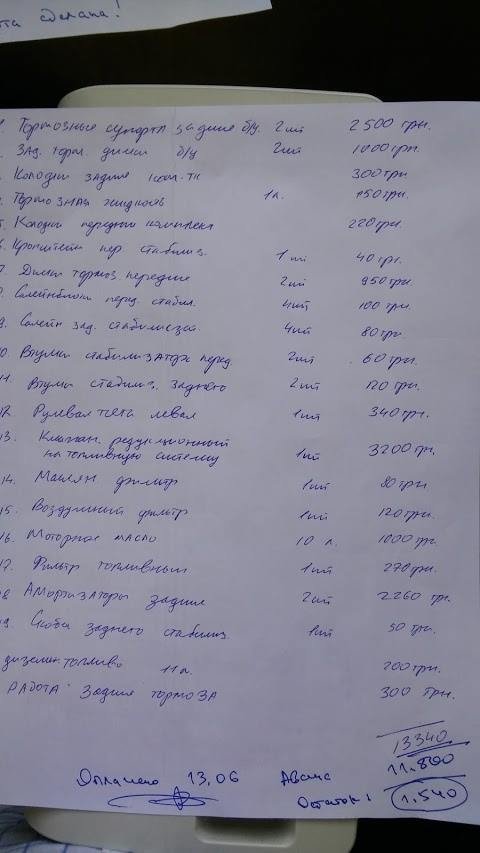 та сделана!
1. Тормозные супорта задние б/у. 2шт 2500 грн.
. зад. торм. диски б/у 2шт 1000 грн.
. Колодки задние ком-тк 300 грн
. Тормозная жидкость 1л. 150 грн.
5. Колодки передние комплект 220 грн.
6. Кронштейн пер. стабилиз. 1шт 40 грн.
7. Диски тормоз. передние 2шт 950 грн.
. Салейнблоки перед. стабил. 4шт 100 грн.
9. Салейн зад. стабилизат. 4шт 80 грн
10. Втулки стабилизатора перед. 2шт 60 грн.
11. Втулки стабилиз. заднего 2шт 120 грн.
12. Рулевая тяга левая 1шт 340 грн.
13. Клапан. редукционный
на топливную систему 1шт 3200 грн.
14. Маслян фильтр 1шт 80 грн
15. Воздушный фильтр 1шт 120 грн.
16. Моторное масло 10 л. 1000 грн
17. Фильтр топливный 1шт 270 грн.
18. Амортизаторы задние 2шт 2260 грн.
19. Скоба заднего стабилиз. 1шт 50 грн.
дизельтопливо 11л. 200 грн.
РАБОТА задние тормоза 300 грн.
13340
Оплачено 13.06 Аванс 11.800
Остаток: 1.540